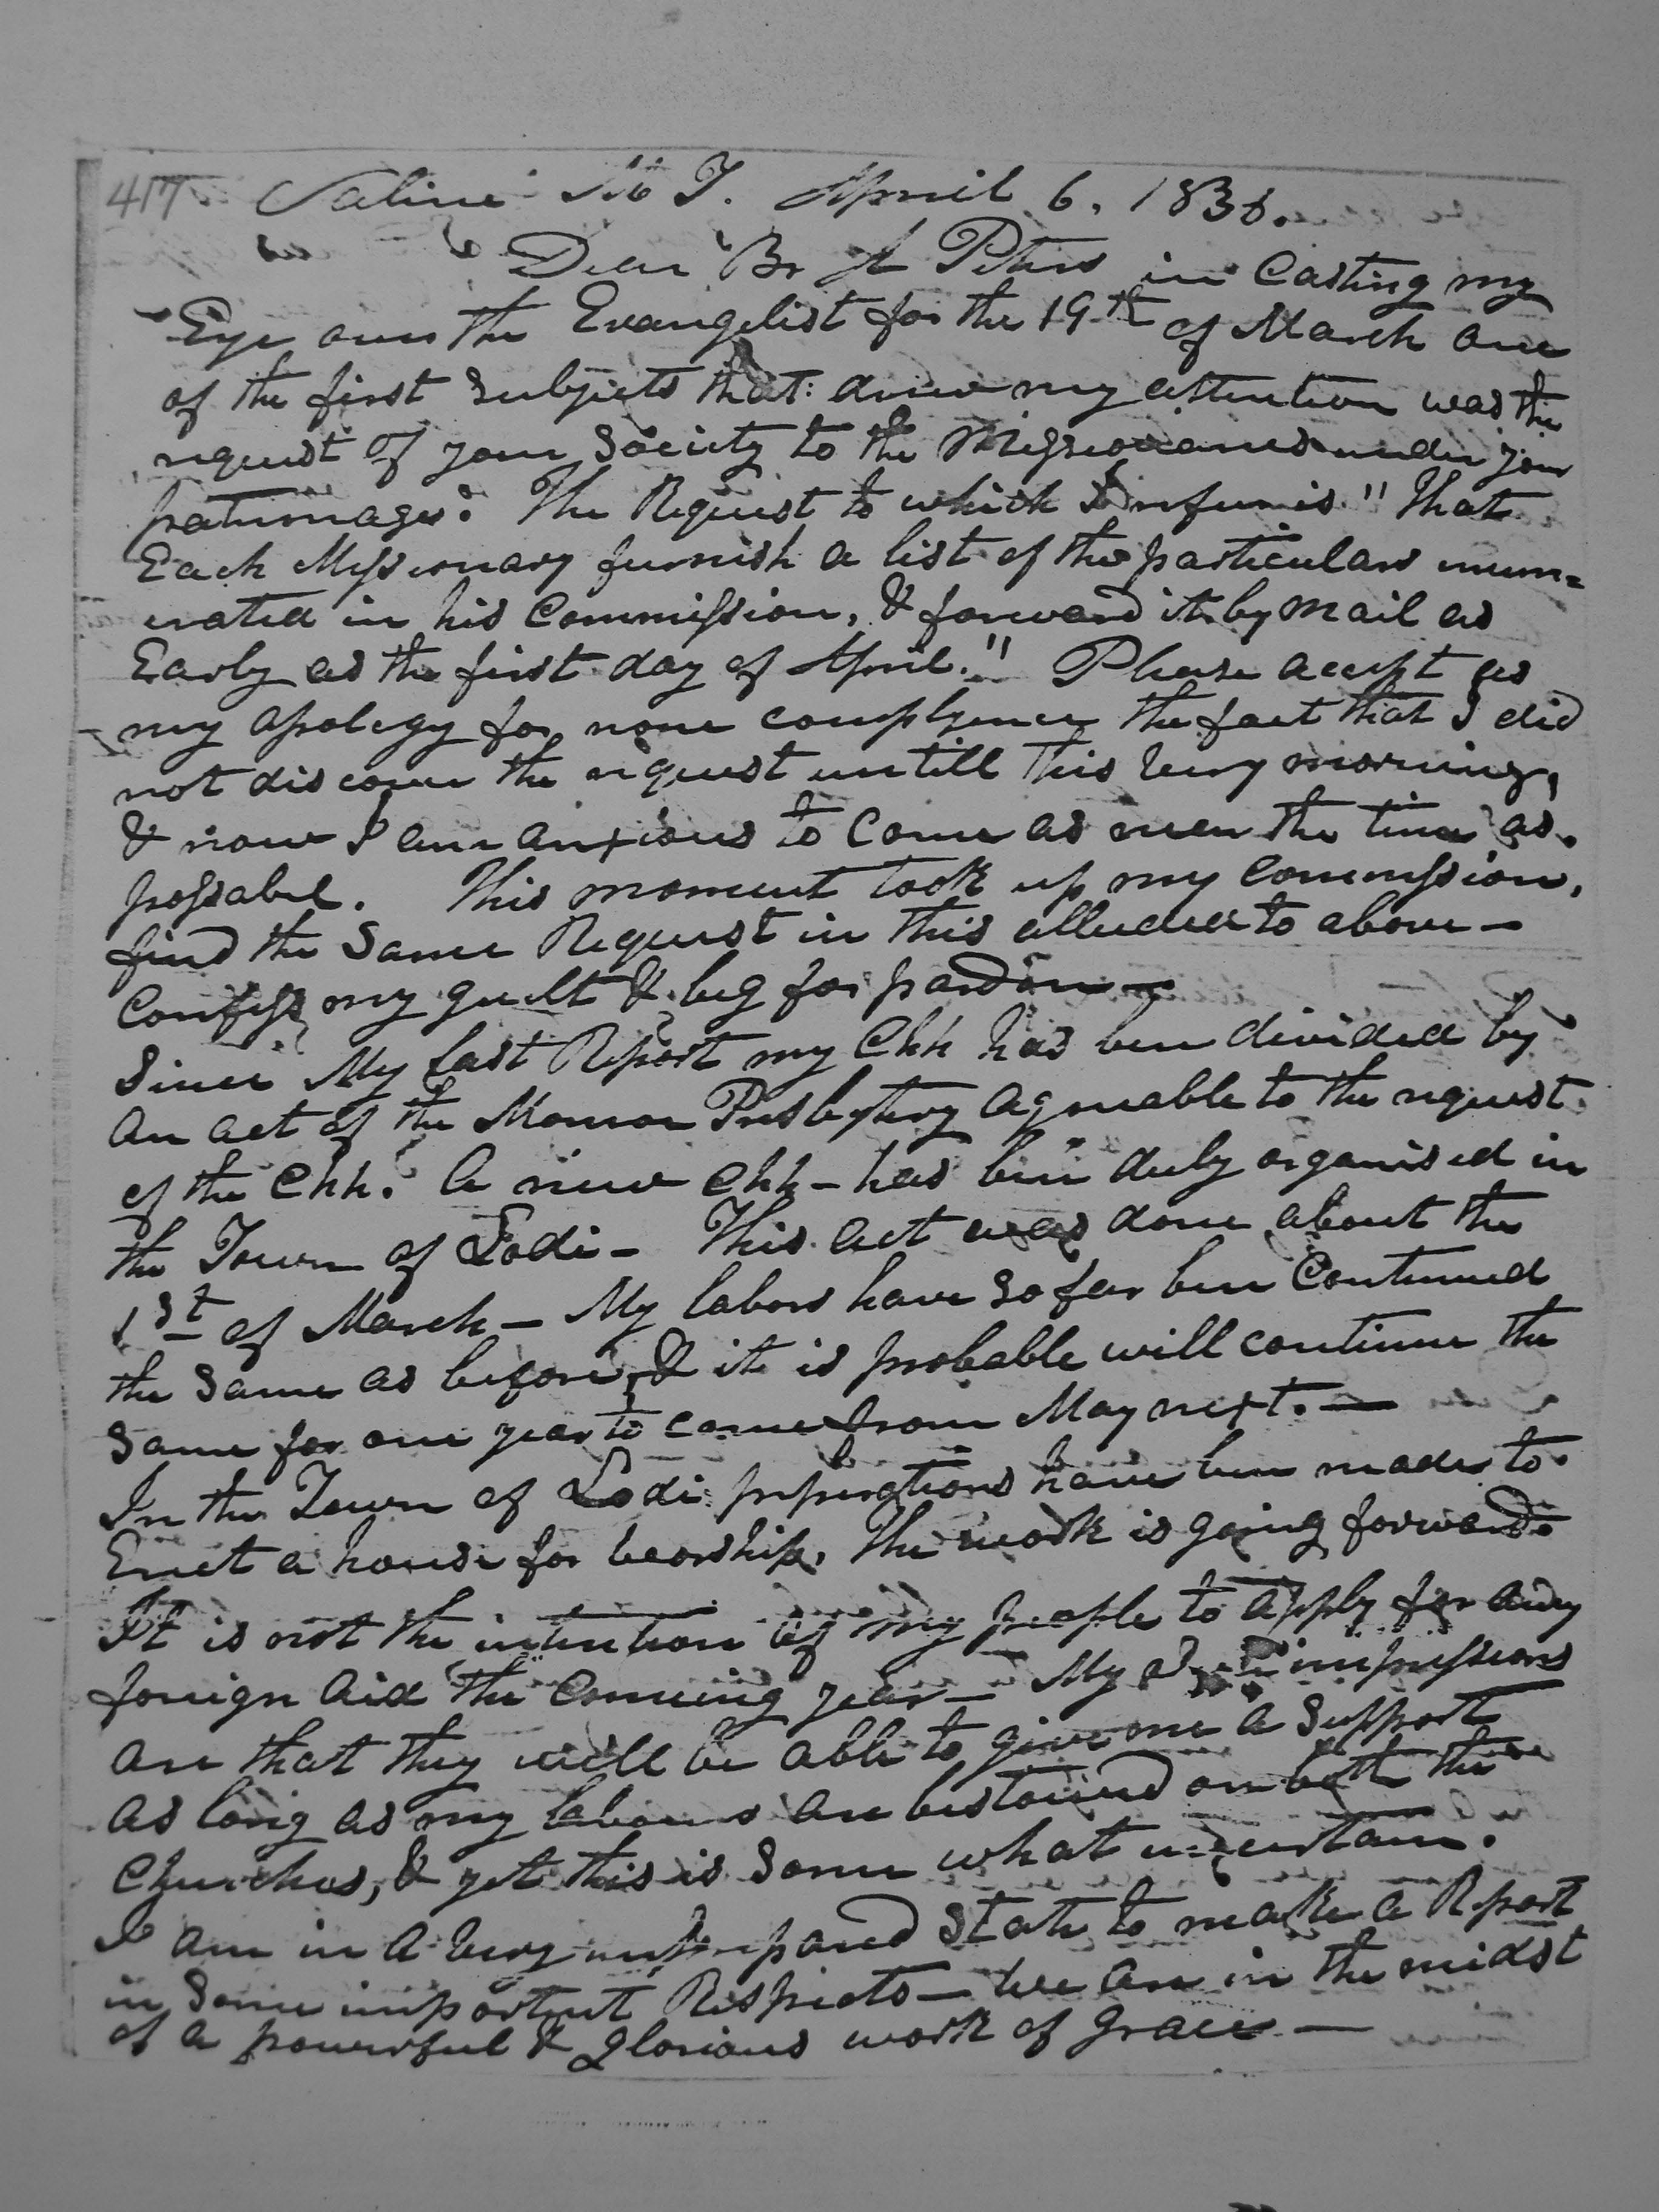 417 Saline M T. April 6, 1836.
Dear Br A Peters in Casting my
Eye over the Evangelist for the 19th of March one
of the first Subjects that drew my attention was the
request of your Society to the Missionaries under your
patronage. The Request to which I refer is "That
Each Missionary furnish a list of the particulars enum=
erated in his Commission, & forward it by Mail as
Early as the first day of April." Please accept as
my apology for none complyence the fact that I did
not discover the request untill this very morning,
& now I am anxious to Come as near the time as
possabl. This moment took up my Commission,
find the Same Request in this alluded to above —
Confess my guilt & beg for pardon —
Since My last Report my Chh has ben divided by
an act of the Monroe Presbytery agreeable to the request
of the Chh. A new Chh - has bin duly organised in
the Town of Lodi - This act was done about the
1st of March — My labors have so far ben Continued
the Same as before, & it is probable will continue the
Same for one year to come from May next. —
In the Town of Lodi preperations have ben made to
Erect a house for worship. The work is going forward.
It is not the intention of my people to apply for any
foreign Aid the Comeing year — My impressions
are that they will be able to give me a Support
as long as my labours are bestowed on both the
Churches, & yet this is Some what uncertain.
I am in a very unprepared State to make a Report
in Some important Respects — we are in the midst
of a powerful & glorious work of grace —